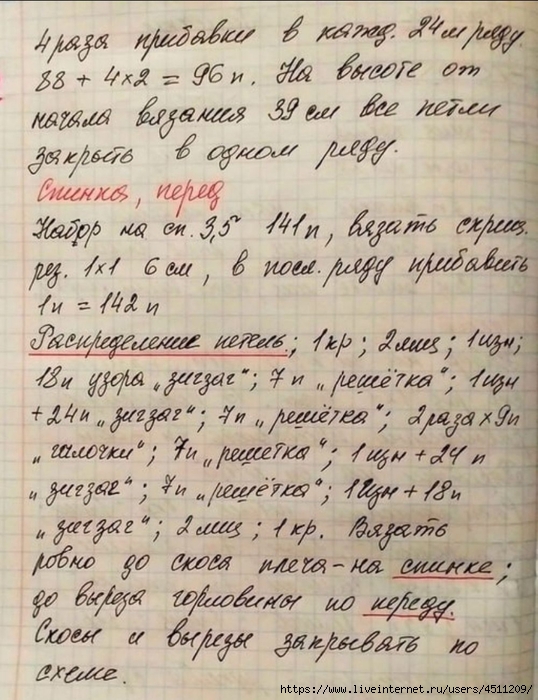 4 раза прибавки в кажд. 24м ряду.
88 + 4×2 = 96 п. На высоте от
начала вязания 39 см все петли
закрыть в одном ряду.
Спинка, перед
Набор на сп. 3,5 141 п, вязать скрещ.
рез. 1×1 6 см, в посл. ряду прибавить
1 п = 142 п
Распределение петель: 1 кр; 2 лиц; 1 изн;
18 п узора „зигзаг"; 7 п „решётка"; 1 изн
+ 24 п „зигзаг"; 7 п „решётка"; 2 раза × 9 п
„галочки"; 7 п „решетка"; 1 изн + 24 п
„зигзаг"; 7 п „решётка"; 1 изн + 18 п
„зигзаг"; 2 лиц; 1 кр. Вязать
ровно до скоса плеча – на спинке;
до выреза горловины по переду.
Скосы и вырезы закрывать по
схеме.
https://www.liveinternet.ru/users/4511209/